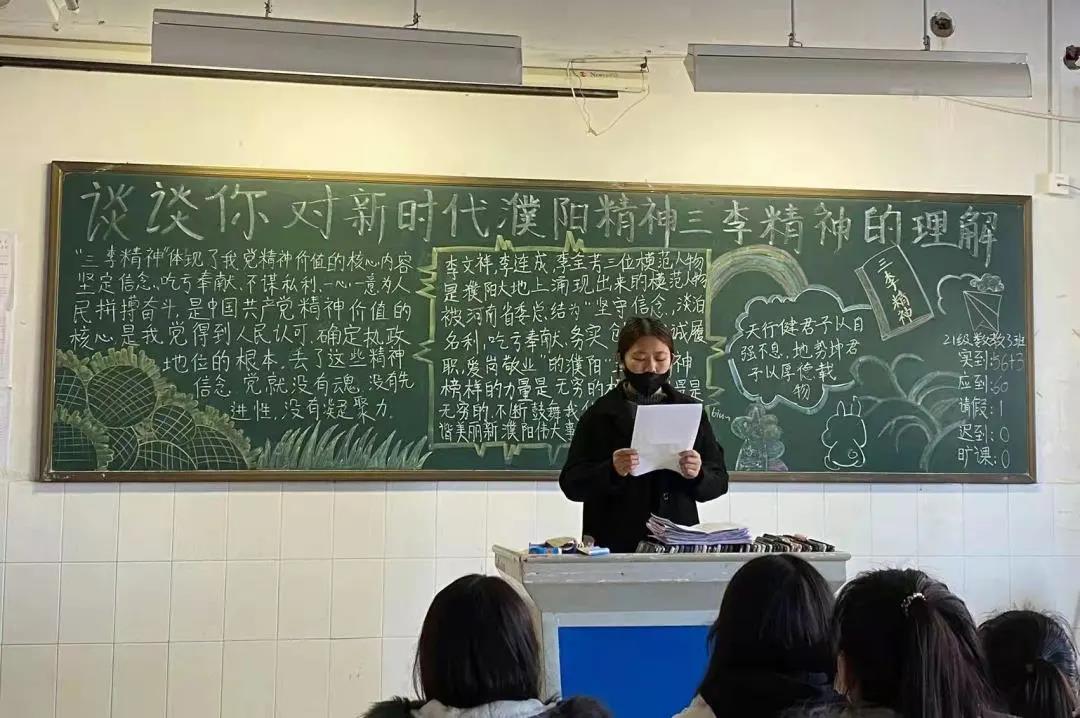 谈谈你对新时代濮阳精神三李精神的理解
"三李精神"体现了我党精神价值的核心内容
坚定信念、吃亏奉献、不谋私利、一心一意为人
民拼搏奋斗,是中国共产党精神价值的
核心是我党得到人民认可,确定执政
地位的根本,丢了这些精神
信念,党就没有魂,没有先
进性,没有凝聚力.
李文祥,李连成,李全芳三位模范人物
是濮阳大地上涌现出来的模范人物
被河南省委总结为"坚守信念,淡泊
名利,吃亏奉献,务实 诚履
职,爱岗敬业"的濮阳 神
榜样的力量是无穷的 是
无穷的,不断鼓舞我
谐美丽新濮阳伟大事
biu~
天行健君子以自
强不息,地势坤君
子以厚德载
物
三李精神
21级数教3班
实到:56+3
应到:60
请假:1
迟到:0
旷课:0